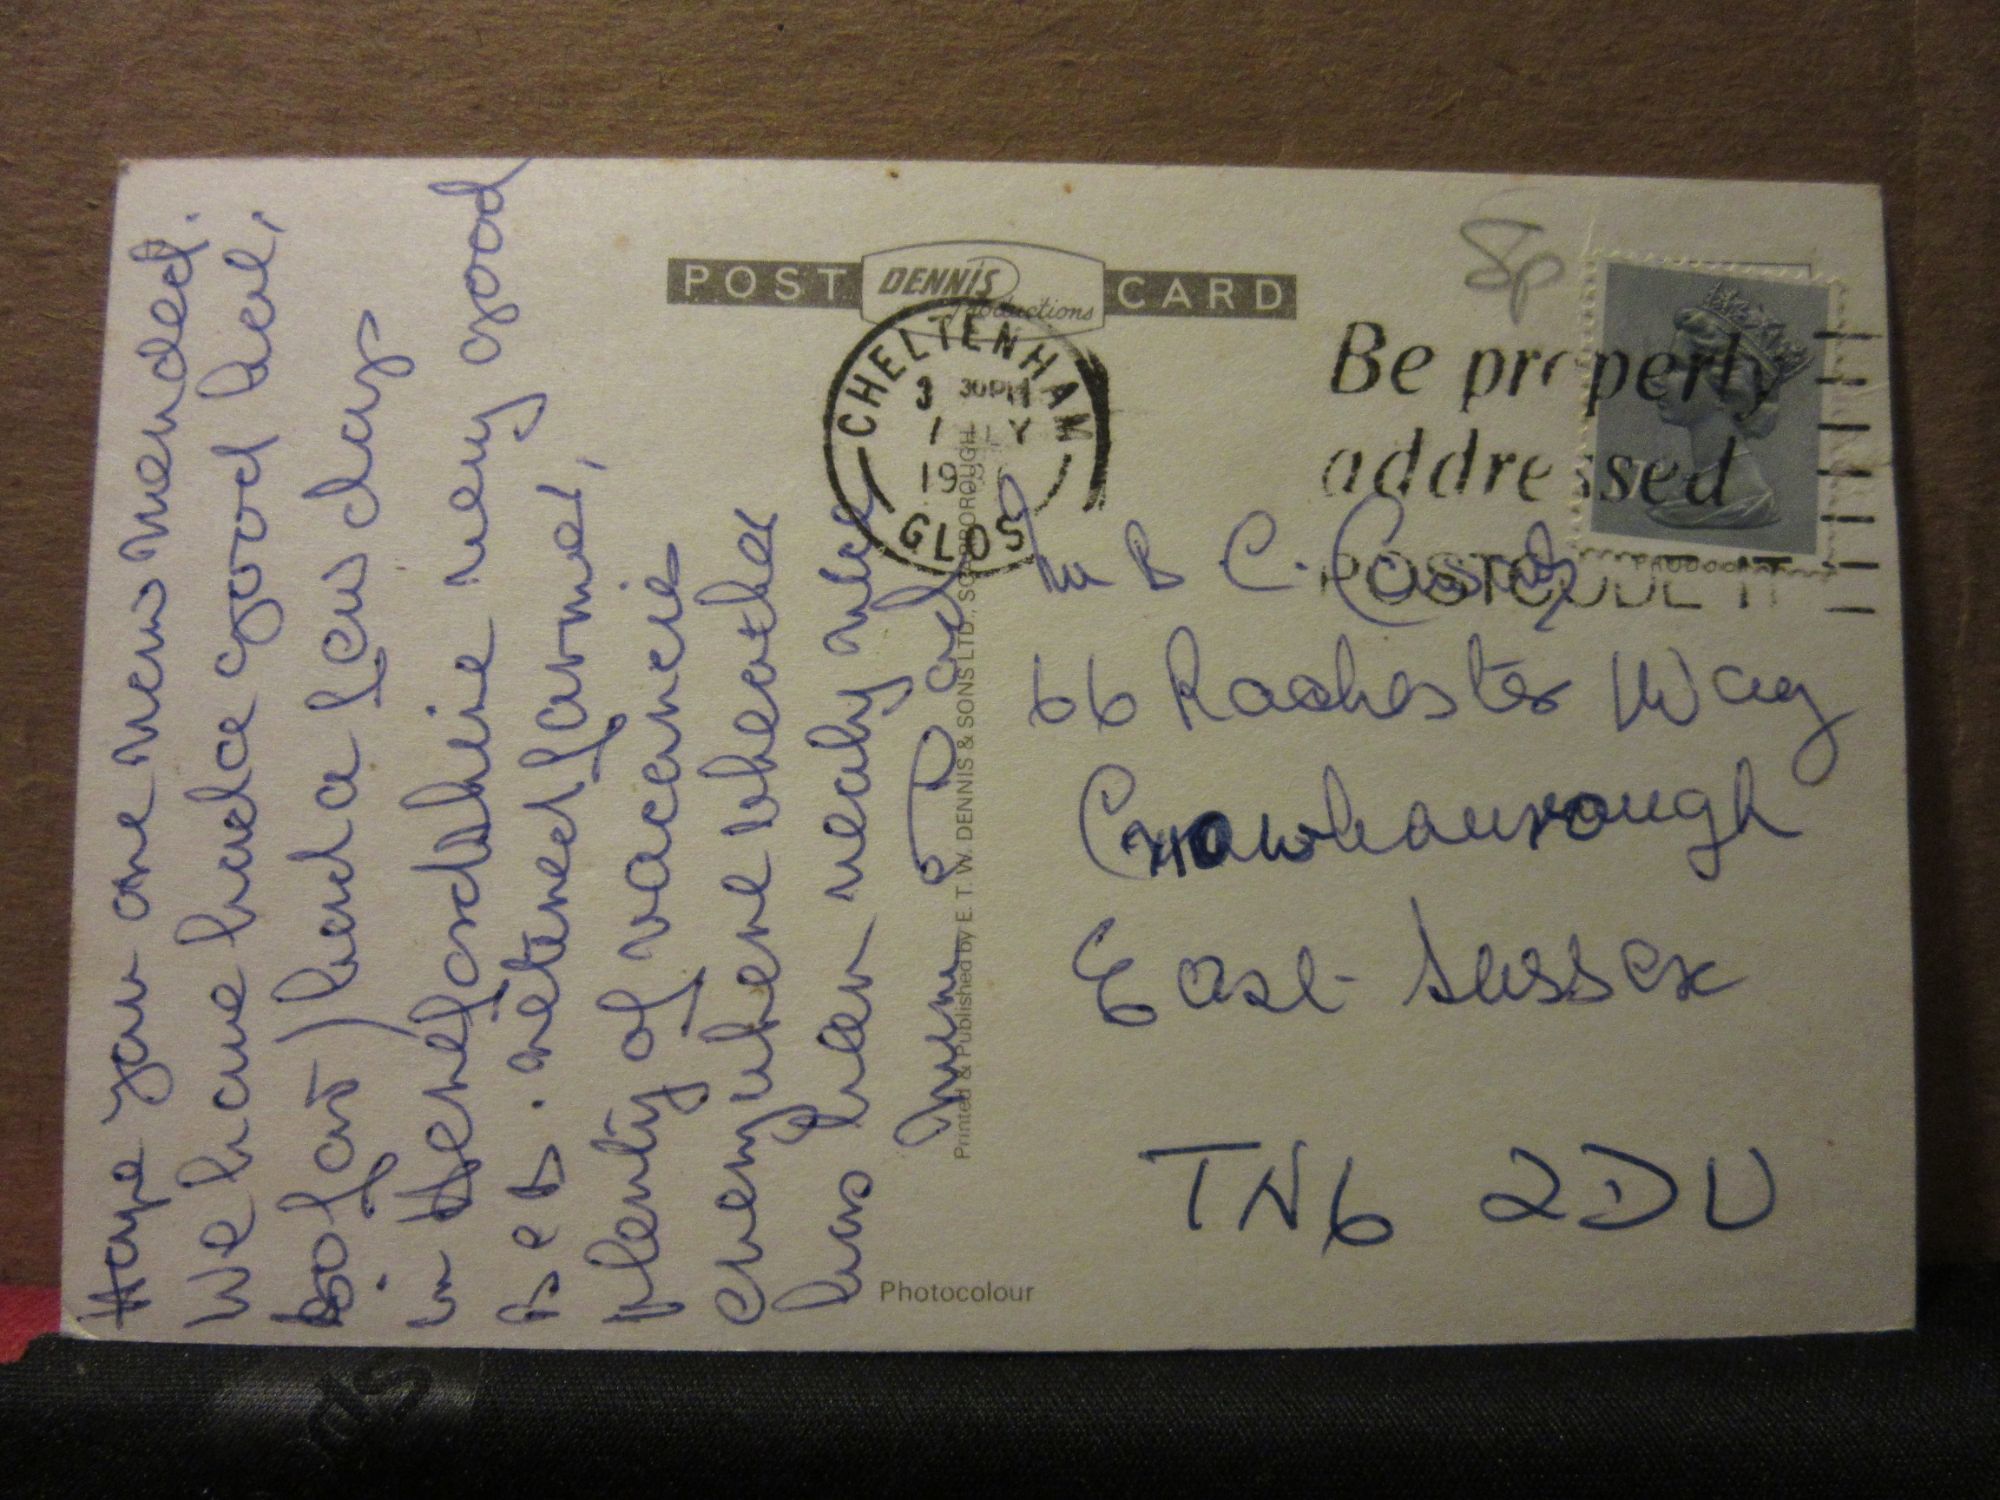 Hope you are now mended.
We have had a good heal,
so far) had a few days
in Herefordshire very good
B e B. retired farmer,
plenty of vacancies
everywhere wheather
has been nealy nice
Mum Dad
POST DENNIS Productions CARD
8p
CHELTENHAM
3 30PM
19
GLOS
Be properly
addressed
POSTCODE IT
B C.
66 Rochester Way
Crowhourough
East Sussex
TN6 2DU
Printed & Published by E. T. W. DENNIS & SONS LTD., SCARBOROUGH
Photocolour